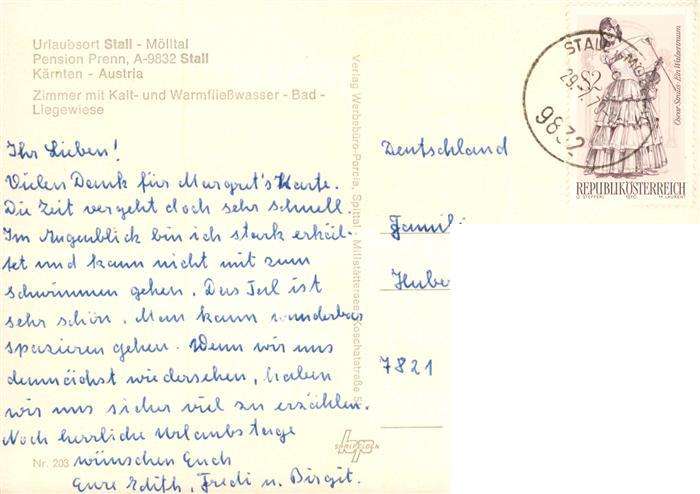 Urlaubsort Stall - Mölltal
Pension Prenn, A-9832 Stall
Kärnten - Austria
Zimmer mit Kalt- und Warmfließwasser - Bad -
Liegewiese
Ihr Lieben!
Vielen Dank für Margret's Karte.
Die Zeit vergeht doch sehr schnell.
Im Augenblick bin ich stark erkäl-
tet und kann nicht mit zum
schwimmen gehen. Das Tal ist
sehr schön. Man kann wunderbar
spazieren gehen. Wenn wir uns
demnächst wiedersehen, haben
wir uns sicher viel zu erzählen.
Noch herrliche Urlaubstage
wünschen Euch
Eure Edith, Fredi u. Birgit.
Nr. 203
Verlag Werbebüro-Porcia, Spittal - Millstättersee, Koschatstraße
Deutschland
Famili
Hube
7821
STALL
9832
Oscar Straus · Ein Walzertraum
REPUBLIK ÖSTERREICH
1970